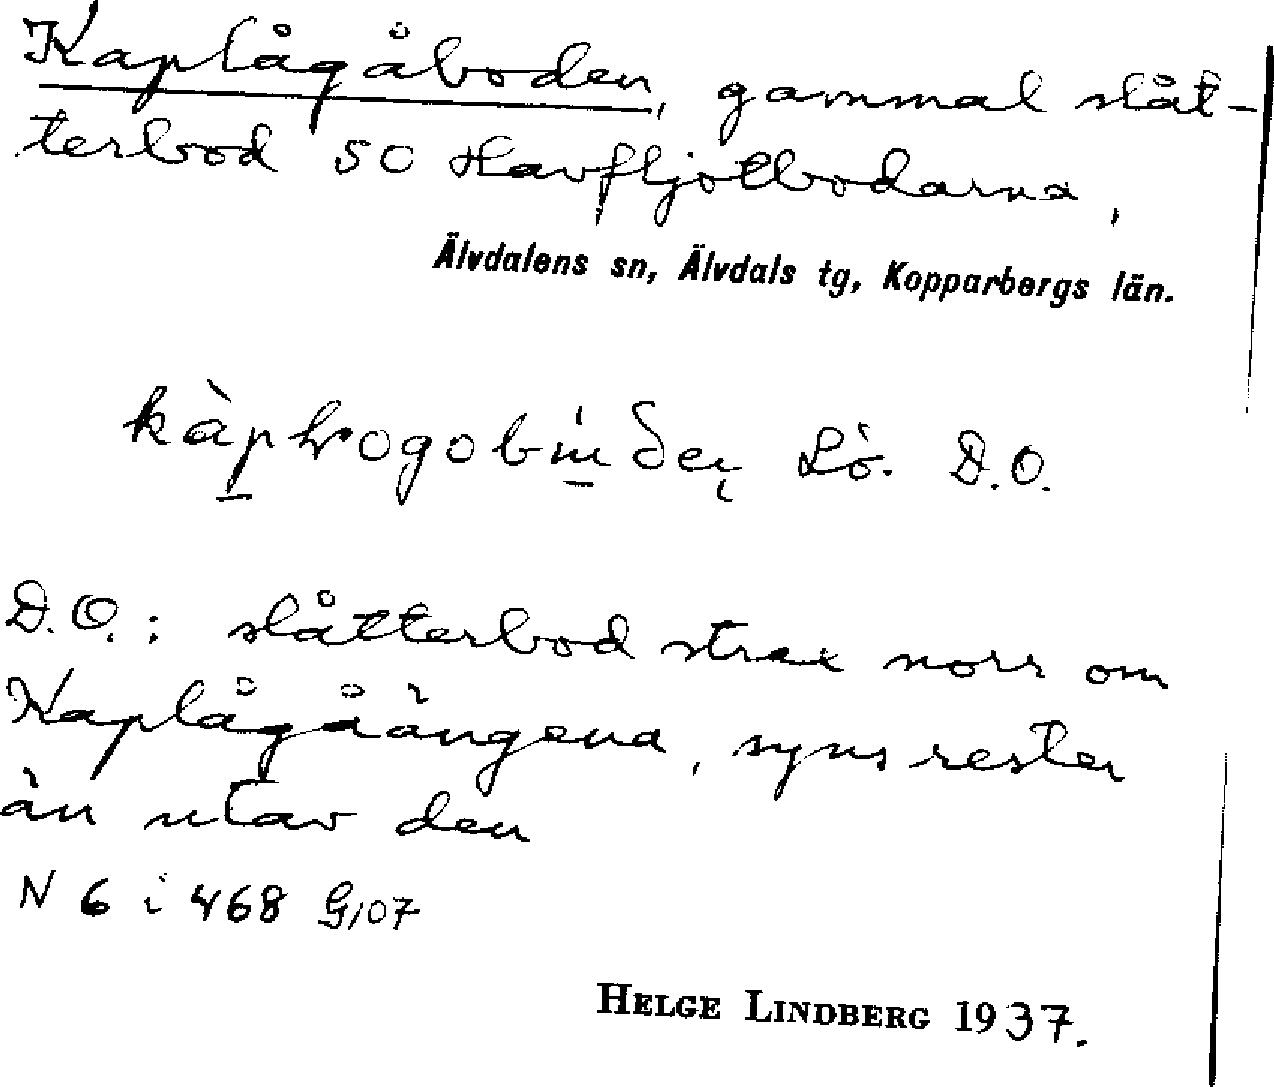 Kaplågåboden, gammal slåt-
terbod SO Havfljotbodarna,
Älvdalens sn, Älvdals tg, Kopparbergs län.
Lò. D.O.
D.O.: slåtterbod strax norr om
Kaplågåängena, syns rester
än utav den
N 6 i 468 G/07
HELGE LINDBERG 1937.